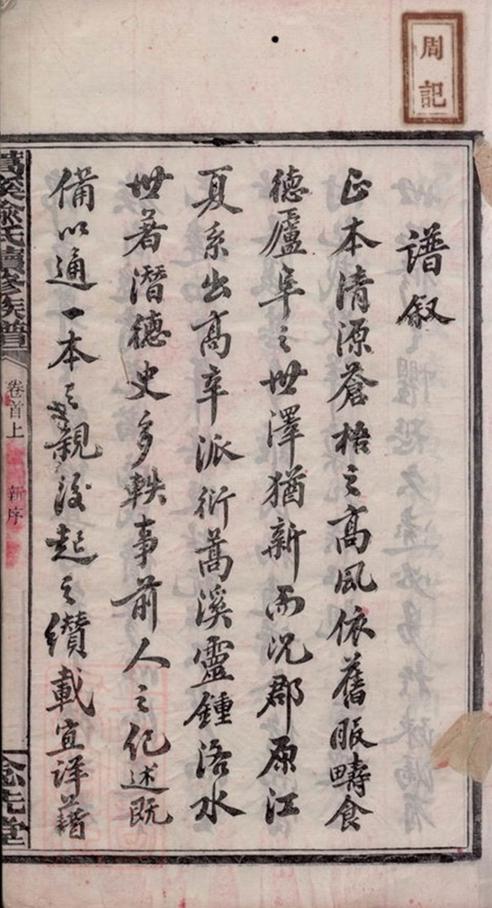 周記
譜叙
正本清源蒼梧之高風依舊服疇食
德廬阜之世澤猶新而况郡原江
夏系出高辛派衍蒿溪靈鍾洛水
世著潛德史多軼事前人之纪述既
備以通一本之親後起之纘載宜詳藉
俞氏續修族譜
卷首上
新序
先堂